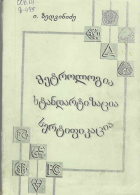 ი. ზედგინიძე
მეტროლოგია
სტანდარტიზაცია
სერტიფიკაცია